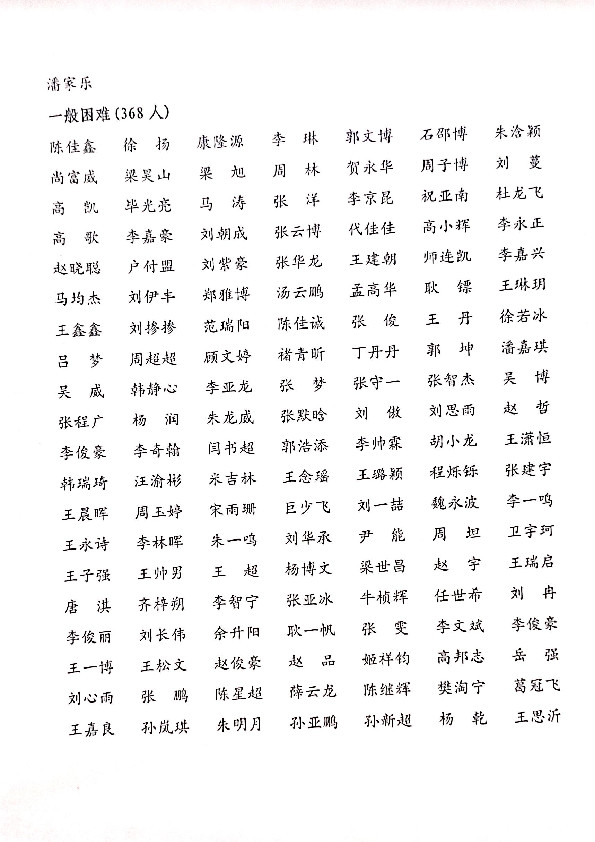 潘家乐
一般困难(368人)
陈佳鑫 徐扬 康隆源 李琳 郭文博 石邵博 朱浛颖
尚富威 梁昊山 梁旭 周林 贺永华 周子博 刘蔓
高凯 毕光亮 马涛 张洋 李京昆 祝亚南 杜龙飞
高歌 李嘉豪 刘朝成 张云博 代佳佳 高小辉 李永正
赵晓聪 户付盟 刘紫豪 张华龙 王建朝 师连凯 李嘉兴
马均杰 刘伊丰 郑雅博 汤云鹏 孟高华 耿镖 王琳玥
王鑫鑫 刘掺掺 范瑞阳 陈佳诚 张俊 王丹 徐若冰
吕梦 周超超 顾文婷 褚青昕 丁丹丹 郭坤 潘嘉琪
吴威 韩静心 李亚龙 张梦 张守一 张智杰 吴博
张程广 杨润 朱龙威 张默晗 刘傲 刘思雨 赵哲
李俊豪 李奇翰 闫书超 郭浩添 李帅霖 胡小龙 王潇恒
韩瑞琦 汪渝彬 米吉林 王念瑶 王璐颖 程烁铄 张建宇
王晨晖 周玉婷 宋雨珊 巨少飞 刘一喆 魏永波 李一鸣
王永诗 李林晖 朱一鸣 刘华承 尹能 周坦 卫宇珂
王子强 王帅男 王超 杨博文 梁世昌 赵宇 王瑞启
唐淇 齐梓朔 李智宁 张亚冰 牛桢辉 任世希 刘冉
李俊丽 刘长伟 余升阳 耿一帆 张雯 李文斌 李俊豪
王一博 王松文 赵俊豪 赵品 姬祥钧 高邦志 岳强
刘心雨 张鹏 陈星超 薛云龙 陈继辉 樊洵宁 葛冠飞
王嘉良 孙岚琪 朱明月 孙亚鹏 孙新超 杨乾 王思沂